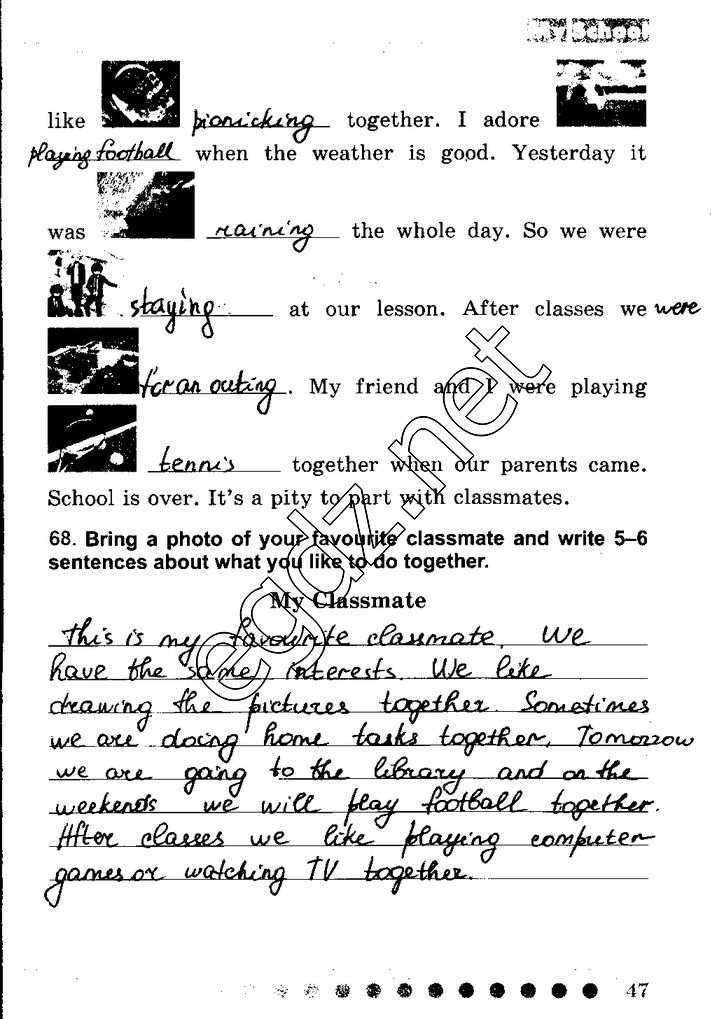 My School
like pionicking together. I adore
playing football when the weather is good. Yesterday it
was raining the whole day. So we were
staying at our lesson. After classes we were
for an outing. My friend and I were playing
tennis together when our parents came.
School is over. It's a pity to part with classmates.
68. Bring a photo of your favourite classmate and write 5–6
sentences about what you like to do together.
My Classmate
This is my favourite classmate. We
have the same interests. We like
drawing the pictures together. Sometimes
we are doing home tasks together. Tomorrow
we are going to the library and on the
weekends we will play football together.
After classes we like playing computer
games or watching TV together.
47
egdz.net